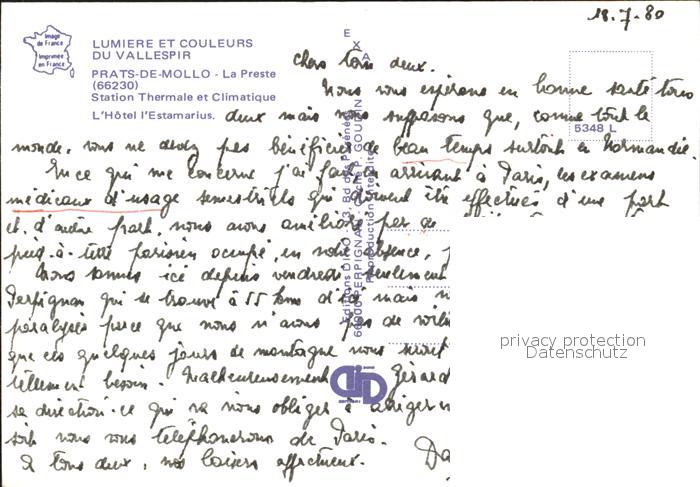 18.7-80
Image de France
Imprimée en France
LUMIERE ET COULEURS
DU VALLESPIR
PRATS-DE-MOLLO - La Preste
(66230)
Station Thermale et Climatique
L'Hôtel l'Estamarius.
EXA
5348 L
Chers tous deux.
Nous vous espérons en bonne santé tous
deux mais nous supposons que, comme tout le
monde, vous ne devez pas bénéficier de beau temps surtout en Normandie.
En ce qui me concerne j'ai fait, en arrivant à Paris, les examens
médicaux d'usage semestriels qui doivent être effectués d'une part
et d'autre part, nous avons amélioré
pied-à-terre parisien occupé, en notre absence,
Nous sommes ici depuis vendredi seulement
Perpignan qui se trouve à 55 kms d'ici mais
paralysés parce que nous n'avons pas de
que ces quelques jours de montagne nous
tellement besoin. Malheureusement Gérard
sa direction. ce qui va nous obliger à abréger
soit nous vous téléphonerons de Paris.
A tous deux, nos baisers affectueux.
Editions DINO - 53, Bd des Pyrénées
66000 PERPIGNAN - Cliché P. GOUDIN
Reproduction interdite
DINO
privacy protection
Datenschutz